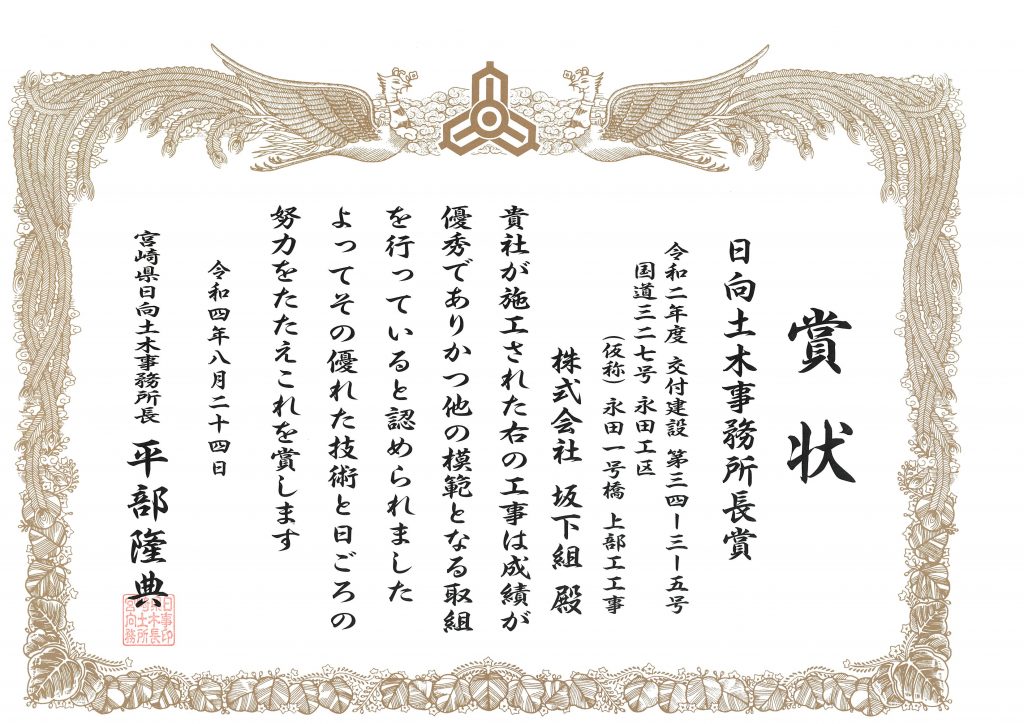 賞状
日向土木事務所長賞
令和二年度 交付建設 第三四ー三ー五号
国道三二七号 永田工区
(仮称)永田一号橋 上部工工事
株式会社 坂下組 殿
貴社が施工された右の工事は成績が
優秀でありかつ他の模範となる取組
を行っていると認められました
よってその優れた技術と日ごろの
努力をたたえこれを賞します
令和四年八月二十四日
宮崎県日向土木事務所長 平部隆典